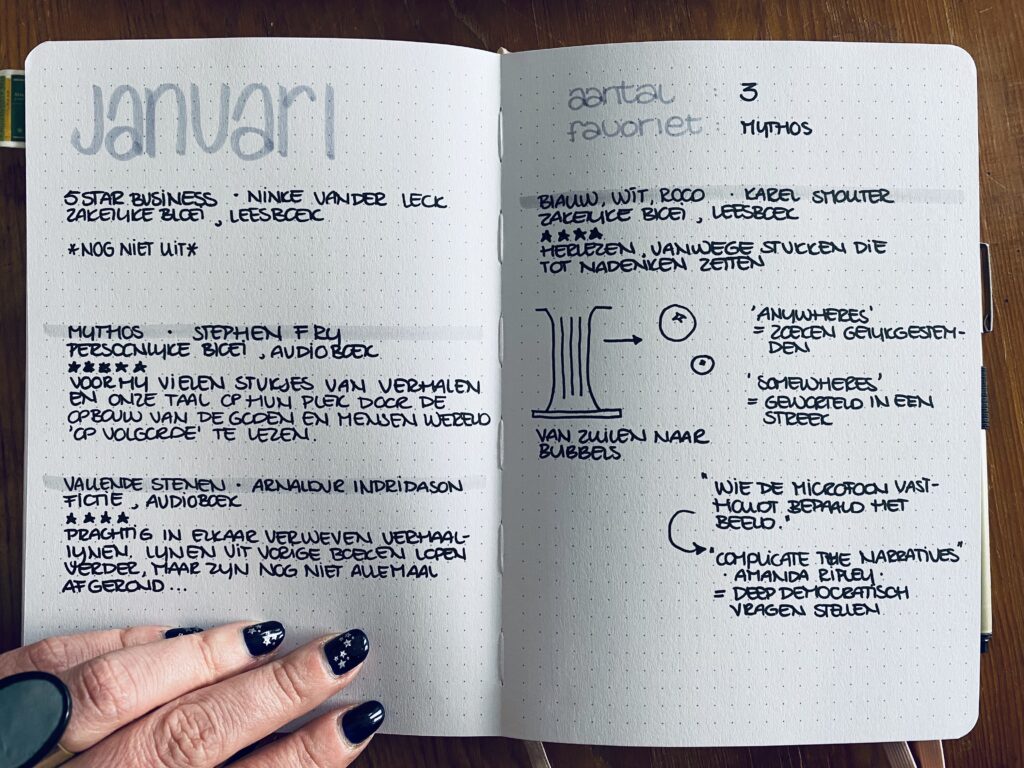 januari
5 STAR BUSINESS · NINKE VAN DER LECK
ZAKELIJKE BIEB, LEESBOEK
*NOG NIET UIT*
MYTHOS · STEPHEN FRY
PERSOONLIJKE BIEB, AUDIOBOEK
★★★★★
VOOR MIJ VIELEN STUKJES VAN VERHALEN
EN ONZE TAAL OP HUN PLEK DOOR DE
OPBOUW VAN DE GODEN EN MENSEN WERELD
'OP VOLGORDE' TE LEZEN.
VALLENDE STENEN · ARNALDUR INDRIDASON
FICTIE, AUDIOBOEK
★★★★
PRACHTIG IN ELKAAR VERWEVEN VERHAAL-
LIJNEN. LIJNEN UIT VORIGE BOEKEN LOPEN
VERDER, MAAR ZIJN NOG NIET ALLEMAAL
AFGEROND...
aantal : 3
favoriet : MYTHOS
BLAUW, WIT, ROOD · KAREL SMOUTER
ZAKELIJKE BIEB, LEESBOEK
★★★★
HERLEZEN, VANWEGE STUKKEN DIE
TOT NADENKEN ZETTEN
VAN ZUILEN NAAR
BUBBELS
'ANYWHERES'
= ZOEKEN GELIJKGESTEM-
DEN
'SOMEWHERES'
= GEWORTELD IN EEN
STREEK
"WIE DE MICROFOON VAST-
HOUDT BEPAALD HET
BEELD."
"COMPLICATE THE NARRATIVES"
· AMANDA RIPLEY ·
= DEEP DEMOCRATISCH
VRAGEN STELLEN